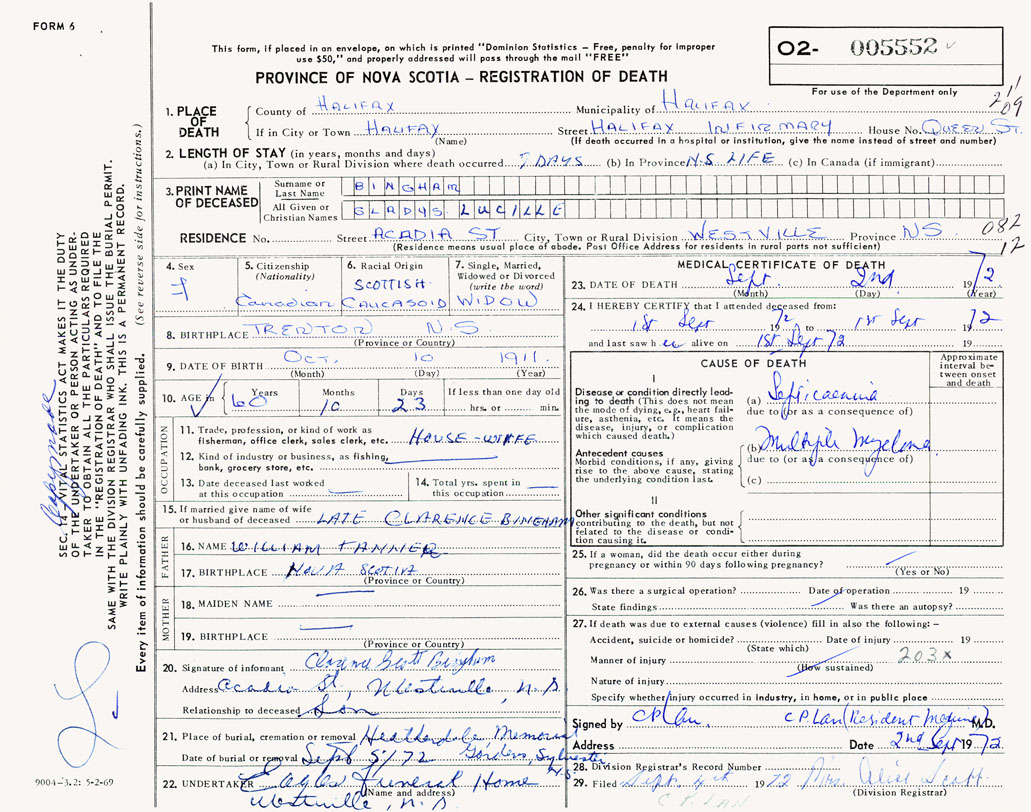 FORM 6
This form, if placed in an envelope, on which is printed "Dominion Statistics – Free, penalty for improper
use $50," and properly addressed will pass through the mail "FREE"
PROVINCE OF NOVA SCOTIA – REGISTRATION OF DEATH
02- 005552
For use of the Department only
209
1. PLACE OF DEATH
County of HALIFAX Municipality of HALIFAX
If in City or Town HALIFAX Street HALIFAX INFIRMARY House No. QUEEN ST.
(Name) (If death occurred in a hospital or institution, give the name instead of street and number)
2. LENGTH OF STAY (in years, months and days)
(a) In City, Town or Rural Division where death occurred 7 DAYS (b) In Province N.S. LIFE (c) In Canada (if immigrant)
3. PRINT NAME OF DECEASED
Surname or Last Name BINGHAM
All Given or Christian Names GLADYS LUCILLE
RESIDENCE No. Street ACADIA ST City, Town or Rural Division WESTVILLE Province NS
(Residence means usual place of abode. Post Office Address for residents in rural parts not sufficient)
082
12
4. Sex F
5. Citizenship (Nationality) Canadian
6. Racial Origin SCOTTISH CAUCASOID
7. Single, Married, Widowed or Divorced (write the word) WIDOW
8. BIRTHPLACE TRENTON N.S.
(Province or Country)
9. DATE OF BIRTH OCT. 10 1911.
(Month) (Day) (Year)
10. AGE in 60 Years 10 Months 23 Days If less than one day old
hrs. or min.
OCCUPATION
11. Trade, profession, or kind of work as
fisherman, office clerk, sales clerk, etc. HOUSE-WIFE
12. Kind of industry or business, as fishing,
bank, grocery store, etc.
13. Date deceased last worked
at this occupation
14. Total yrs. spent in
this occupation
15. If married give name of wife
or husband of deceased LATE CLARENCE BINGHAM
FATHER
16. NAME WILLIAM TANNER
17. BIRTHPLACE NOVA SCOTIA
(Province or Country)
MOTHER
18. MAIDEN NAME
19. BIRTHPLACE
(Province or Country)
20. Signature of informant Clarence Scott Bingham
Address Acadia St., Westville, N.S.
Relationship to deceased Son
21. Place of burial, cremation or removal Heatherdale Memorial
Gardens, Sylvester
N.S.
Date of burial or removal Sept 5/72
22. UNDERTAKER Eagles Funeral Home
(Name and address)
Westville, N.S.
MEDICAL CERTIFICATE OF DEATH
23. DATE OF DEATH Sept. 2nd 1972
(Month) (Day) (Year)
24. I HEREBY CERTIFY that I attended deceased from:
1st Sept 1972 to 1st Sept 1972
and last saw h er alive on 1st Sept 72
CAUSE OF DEATH
Approximate interval between onset and death
I
Disease or condition directly leading to death (This does not mean
the mode of dying, e.g., heart failure, asthenia, etc. It means the
disease, injury, or complication
which caused death.)
(a) Septicaemia
due to (or as a consequence of)
Antecedent causes
Morbid conditions, if any, giving
rise to the above cause, stating
the underlying condition last.
(b) Multiple Myeloma
due to (or as a consequence of)
(c)
II
Other significant conditions
contributing to the death, but not
related to the disease or condition causing it.
25. If a woman, did the death occur either during
pregnancy or within 90 days following pregnancy?
(Yes or No)
26. Was there a surgical operation? Date of operation 19
State findings Was there an autopsy?
27. If death was due to external causes (violence) fill in also the following: –
Accident, suicide or homicide? Date of injury 19
(State which)
Manner of injury 203X
(How sustained)
Nature of injury
Specify whether injury occurred in industry, in home, or in public place
Signed by CPLau. C.P. Lau (Resident M.D.
Address Date 2nd Sept 1972.
28. Division Registrar's Record Number
29. Filed Sept. 4th 1972 Mrs. Alise Scott
(Division Registrar)
C.P. LAN
SEC. 14 – VITAL STATISTICS ACT MAKES IT THE DUTY
OF THE UNDERTAKER OR PERSON ACTING AS UNDER-
TAKER TO OBTAIN ALL THE PARTICULARS REQUIRED
IN THE "REGISTRATION OF DEATH" AND TO FILE THE
SAME WITH THE DIVISION REGISTRAR WHO SHALL ISSUE THE BURIAL PERMIT.
WRITE PLAINLY WITH UNFADING INK. THIS IS A PERMANENT RECORD.
Every item of information should be carefully supplied. (See reverse side for instructions.)
9004-3.2: 5-2-69